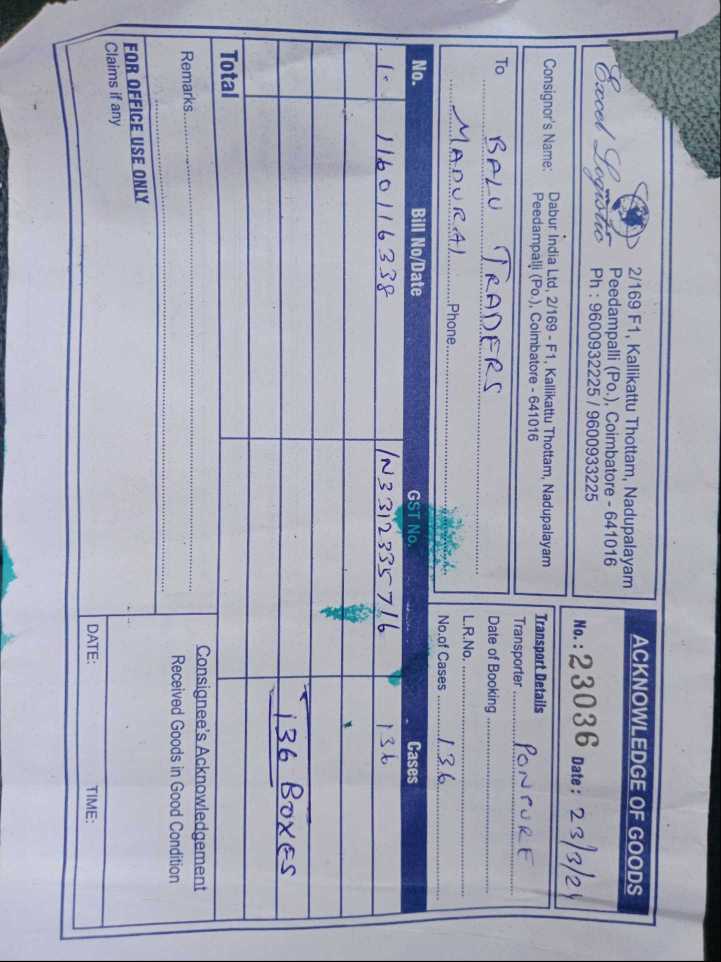 Excel Logistic
2/169 F1, Kallikattu Thottam, Nadupalayam
Peedampalli (Po.), Coimbatore - 641016
Ph : 9600932225 / 9600933225
ACKNOWLEDGE OF GOODS
No. : 23036 Date : 23/3/24
Consignor's Name: Dabur India Ltd, 2/169 - F1, Kallikattu Thottam, Nadupalayam
Peedampalli (Po.), Coimbatore - 641016
To BALU TRADERS
MADURAI Phone
Transport Details
Transporter PONPURE
Date of Booking
L.R.No.
No.of Cases 136
No. Bill No/Date GST No. Cases
1. 1160116338 IN3312335716 136
136 BOXES
Total
Remarks
Consignee's Acknowledgement
Received Goods in Good Condition
FOR OFFICE USE ONLY
Claims if any
DATE: TIME: